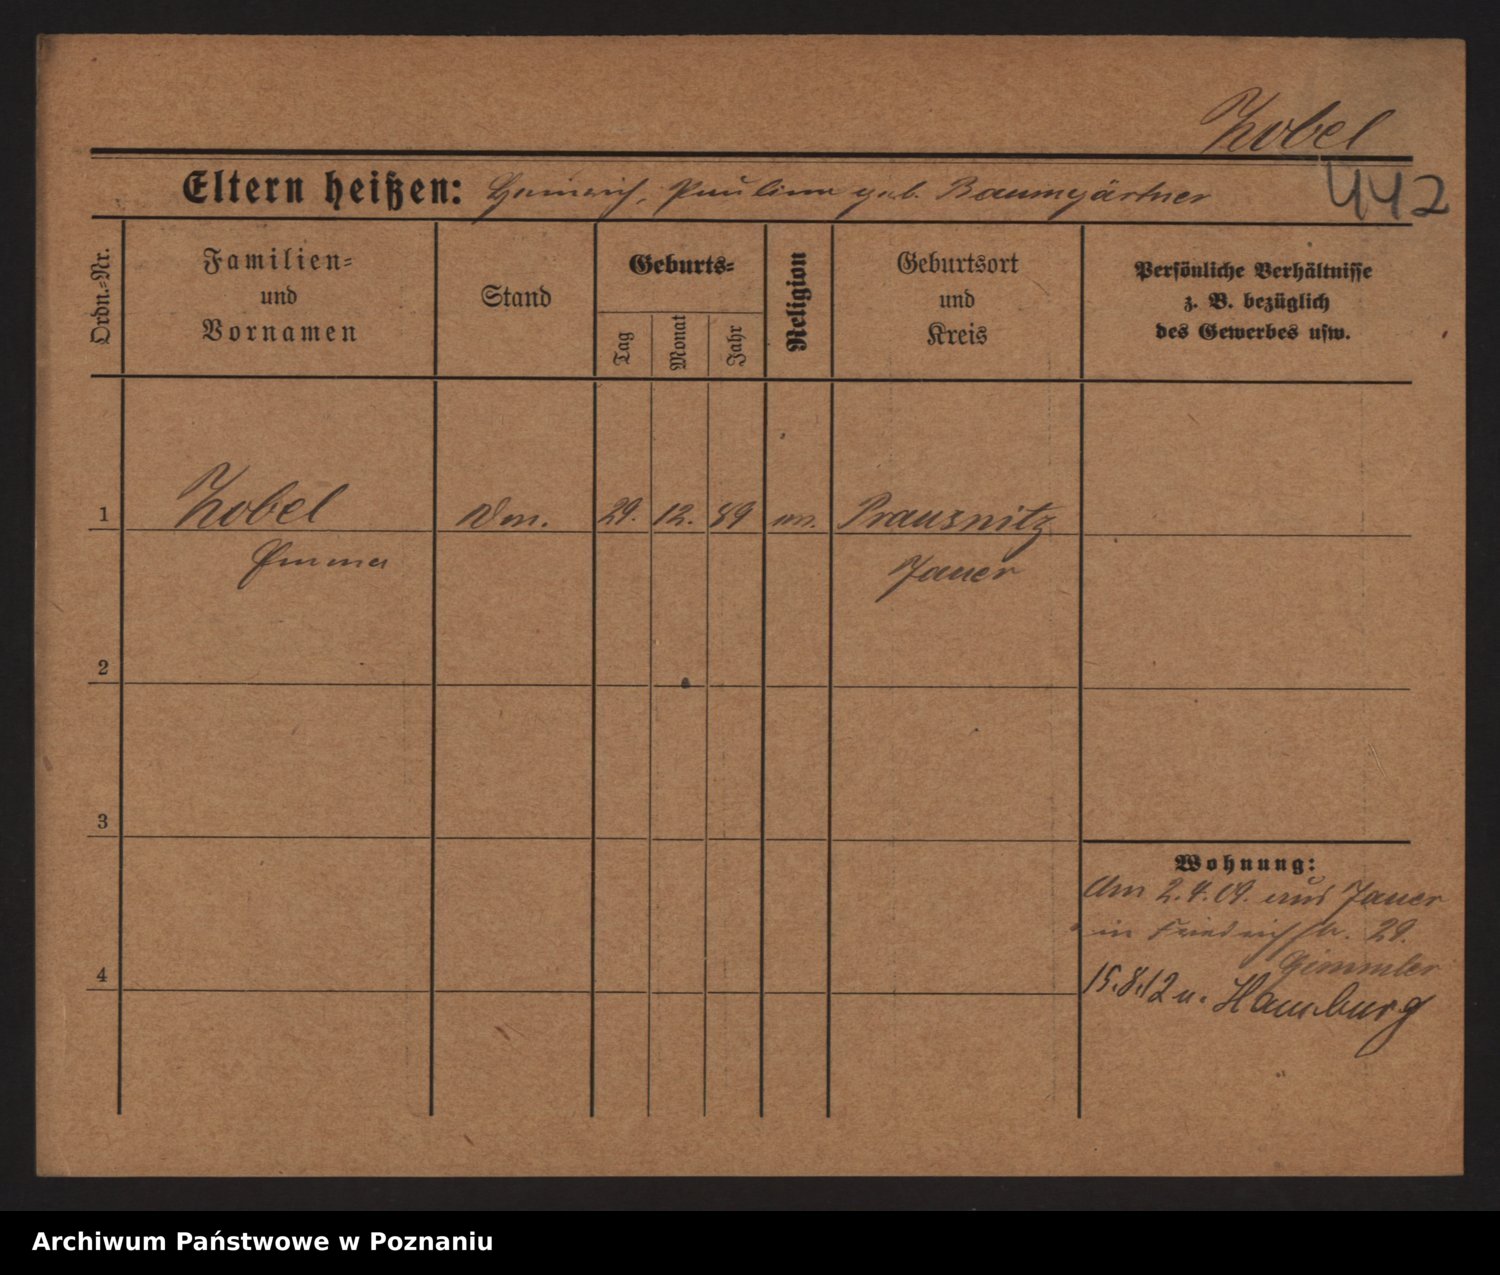 Zobel
442
Eltern heißen: Heinrich, Pauline geb. Baumgärtner
Ordn.-Nr.
Familien-
und
Vornamen
Stand
Geburts-
Tag
Monat
Jahr
Religion
Geburtsort
und
Kreis
Persönliche Verhältnisse
z. B. bezüglich
des Gewerbes usw.
1 Zobel 29. 12. 89 Prausnitz
Emma Jauer
2
3
4
Wohnung:
Am 2.4.09. aus Jauer
in Friedrichstr. 29.
Gimmler
15.8.12 n. Hamburg
Archiwum Państwowe w Poznaniu